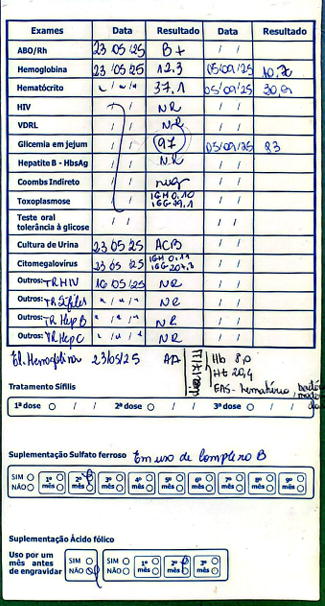 Exames Data Resultado Data Resultado
ABO/Rh 23 05 25 B+ / /
Hemoglobina 23 05 25 12.3 05/09/25
Hematócrito 37.1 05/09/25
HIV / / NR / /
VDRL / / NR / /
Glicemia em jejum / / 97 05/09/25 83
Hepatite B - HbsAg / / NR / /
Coombs Indireto / / neg / /
Toxoplasmose / / IGM 0.10 / /
Teste oral tolerância à glicose / / / /
Cultura de Urina 23 05 25 / /
Citomegalovírus 23 05 25 IGM / /
Outros: TR HIV 16 05 25 NR / /
Outros: TR Sífilis " / " / " NR / /
Outros: TR Hep B " / " / " NR / /
Outros: TR Hep C " / " / " NR / /
El. Hemoglobina 23/05/25 AA
Hb 8,0
Ht 20,4
EAS - hematúria,
Tratamento Sífilis
1ª dose / / 2ª dose / / 3ª dose / /
Suplementação Sulfato ferroso Em uso de Complexo B
SIM NÃO 1º mês 2º mês 3º mês 4º mês 5º mês 6º mês 7º mês 8º mês 9º mês
Suplementação Ácido fólico
Uso por um mês antes de engravidar SIM NÃO SIM NÃO 1º mês 2º mês 3º mês